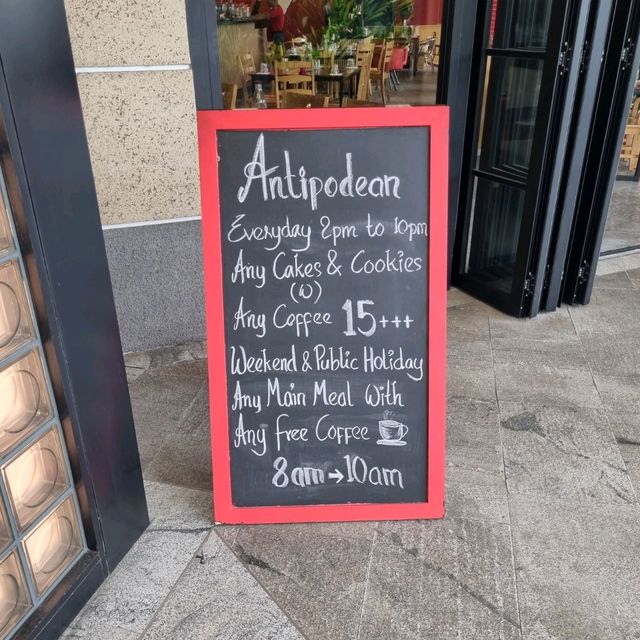 Antipodean
Everyday 2pm to 10pm
Any Cakes & Cookies
(W)
Any Coffee 15+++
Weekend & Public Holiday
Any Main Meal With
Any free Coffee
8am→10am